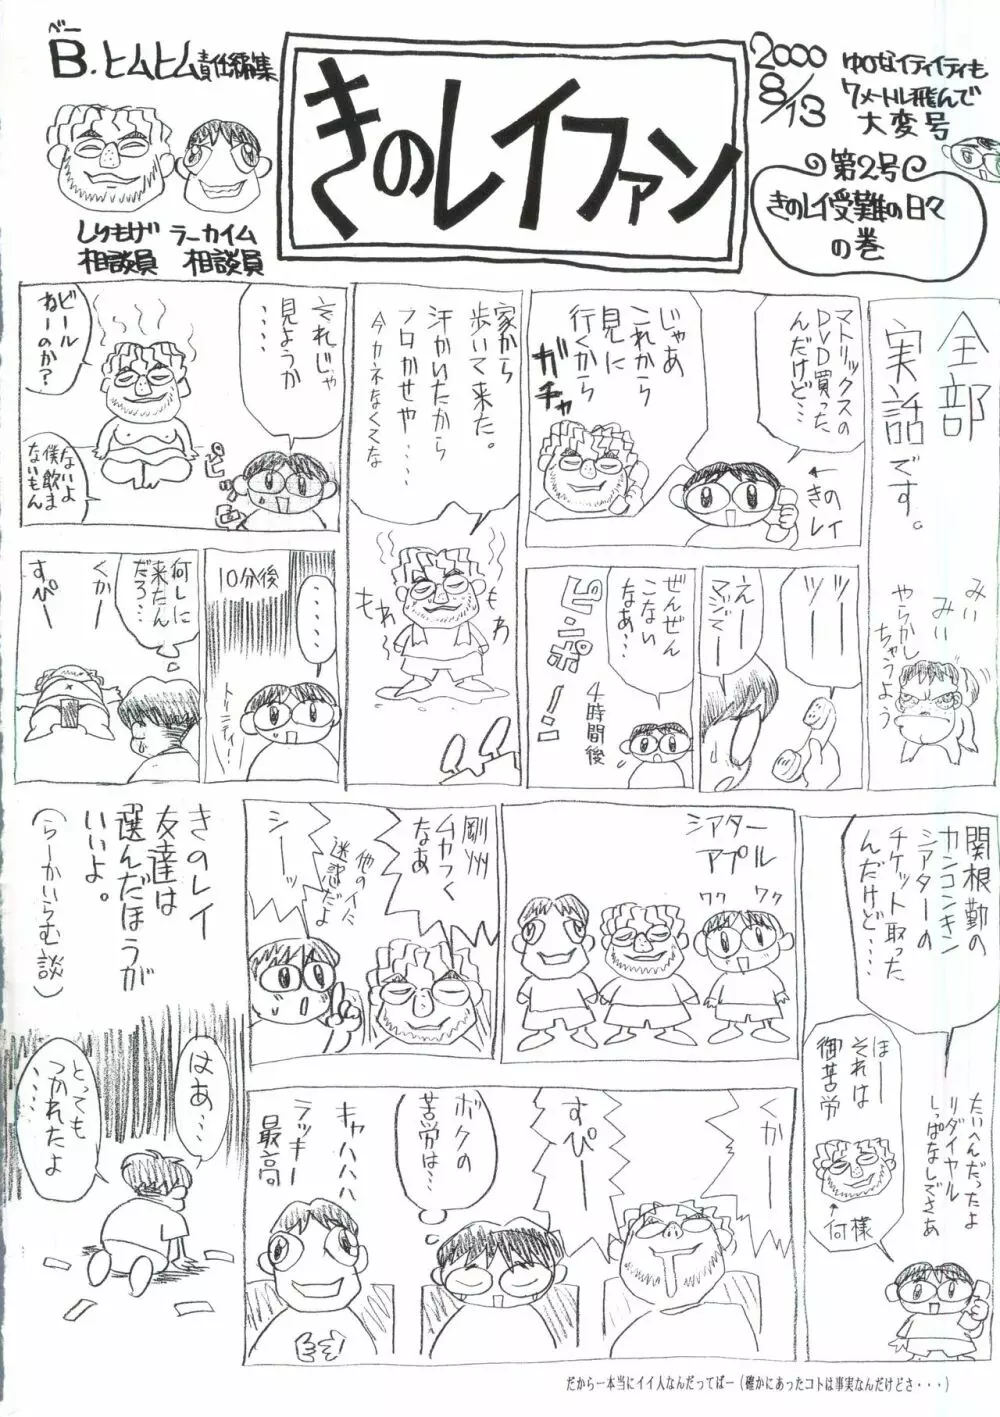 べー
B.ヒムヒム責任編集
しりもげ
相談員
ラーカイム
相談員
きのレイファン
2000
8/13
ゆびなイティイティも
7メートル飛んで
大変号
第2号
きのレイ受難の日々
の巻
全部
実話です。
みい
みい
やらかし
ちゃうよう
マトリックスの
DVD買った
んだけど…
←きの
レイ
じゃあ
これから
見に
行くから
ガチャ
ツー
ツー
えー
マジでー
ぜんぜん
こない
なあ…
4時間後
ピンポーン!
家から
歩いて来た。
汗かいたから
フロかせや……
今カネなくてな
もわ
もわ
それじゃ
見ようか
……
ピ
ビール
ねーのか?
ないよ
僕飲ま
ないもん
10分後
……
トリニティー!
何しに
来たん
だろ…
くかー
すぴー
関根勤の
カンコンキン
シアターの
チケット取った
んだけど……
ほー
それは
御苦労
↑
何様
たいへんだったよ
リダイヤル
しっぱなしでさあ
シアター
アプル
ワク
ワク
剛州
ムカつく
なあ
シーッ
他の人に
迷惑だよ
くかー
すぴー
ボクの
苦労は…
キャハハハハ
ラッキー
最高
きのレイ
友達は
選んだほうが
いいよ。
(らーかいらむ談)
はあ…
とっても
つかれたよ
……
だからー本当にイイ人なんだってばー(確かにあったコトは事実なんだけどさ・・・)